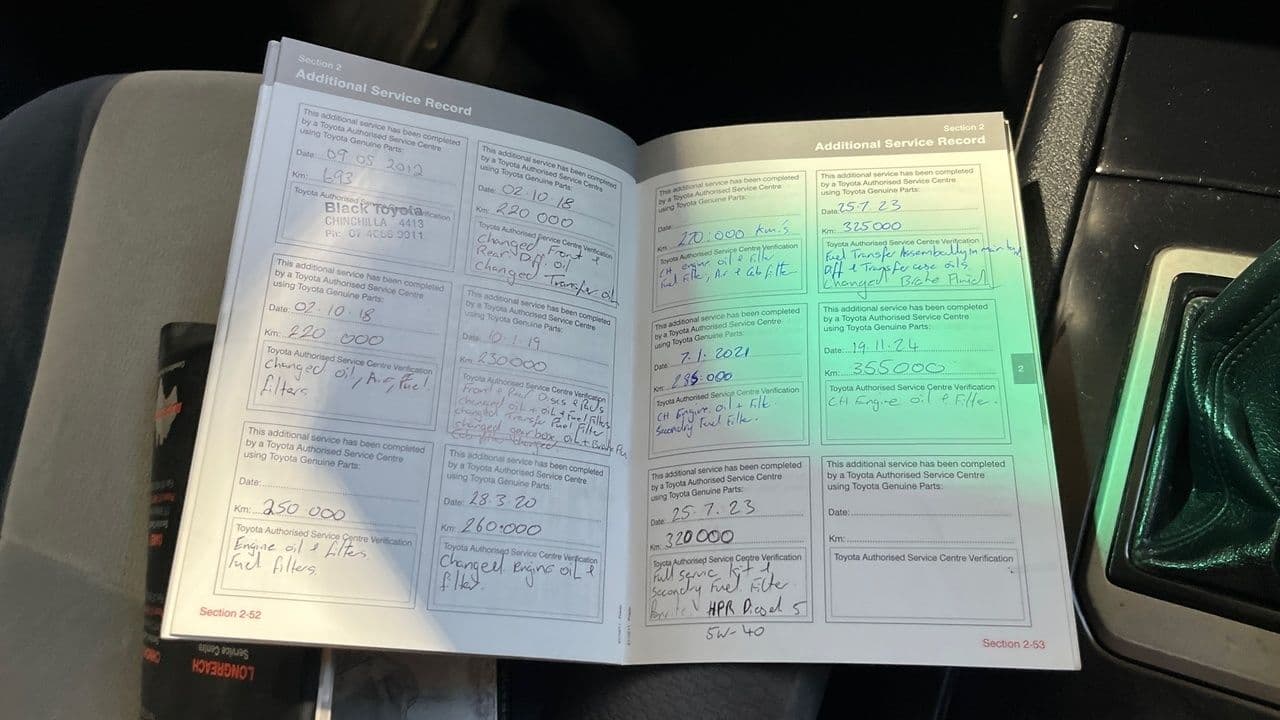 Section 2
Additional Service Record
This additional service has been completed
by a Toyota Authorised Service Centre
using Toyota Genuine Parts:
Date: 09 05 2012
Km: 693
Toyota Authorised Service Centre Verification
Black Toyota
CHINCHILLA 4413
Ph: 07
This additional service has been completed
by a Toyota Authorised Service Centre
using Toyota Genuine Parts:
Date: 02.10.18
Km: 220 000
Toyota Authorised Service Centre Verification
Changed Front &
Rear Diff oil
changed Transfer oil
This additional service has been completed
by a Toyota Authorised Service Centre
using Toyota Genuine Parts:
Date: 02.10.18
Km: 220 000
Toyota Authorised Service Centre Verification
Changed oil, Air, Fuel
filters
This additional service has been completed
by a Toyota Authorised Service Centre
using Toyota Genuine Parts:
Date: 1.19
Km: 230000
Toyota Authorised Service Centre Verification
Front & Discs & Pads
changed oil + oil + Fuel Filters
changed Transfer Fuel Filter
changed gear box oil + Brake
This additional service has been completed
by a Toyota Authorised Service Centre
using Toyota Genuine Parts:
Date:
Km: 250 000
Toyota Authorised Service Centre Verification
Engine oil & filters
Fuel Filters.
This additional service has been completed
by a Toyota Authorised Service Centre
using Toyota Genuine Parts:
Date: 28.3.20
Km: 260.000
Toyota Authorised Service Centre Verification
Changed Engine oil &
filter.
Section 2-52
Section 2
Additional Service Record
This additional service has been completed
by a Toyota Authorised Service Centre
using Toyota Genuine Parts:
Date:
Km: 270.000 km's
Toyota Authorised Service Centre Verification
CH engine oil & filter
Fuel Filter, Air & Cab filter
This additional service has been completed
by a Toyota Authorised Service Centre
using Toyota Genuine Parts:
Date: 25.7.23
Km: 325000
Toyota Authorised Service Centre Verification
Fuel Transfer in main
Diff & Transfer case oils
Changed Brake Fluid
This additional service has been completed
by a Toyota Authorised Service Centre
using Toyota Genuine Parts:
Date: 7.1.2021
Km: 285.000
Toyota Authorised Service Centre Verification
CH Engine oil + Filt.
Secondry Fuel Filter.
This additional service has been completed
by a Toyota Authorised Service Centre
using Toyota Genuine Parts:
Date: 19.11.24
Km: 355000
Toyota Authorised Service Centre Verification
CH Engine oil & Filter.
2
This additional service has been completed
by a Toyota Authorised Service Centre
using Toyota Genuine Parts:
Date: 25.7.23
Km: 320000
Toyota Authorised Service Centre Verification
Full Service kit &
Secondry Fuel Filter
HPR Diesel 5
5W-40
This additional service has been completed
by a Toyota Authorised Service Centre
using Toyota Genuine Parts:
Date:
Km:
Toyota Authorised Service Centre Verification
Section 2-53
LONGREACH
Service Centre